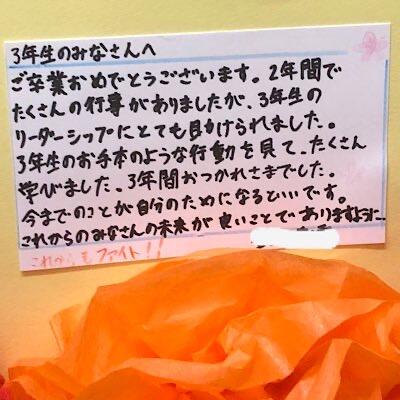 3年生のみなさんへ
ご卒業おめでとうございます。2年間で
たくさんの行事がありましたが、3年生の
リーダーシップにとても助けられました。
3年生のお手本のような行動を見て、たくさん
学びました、3年間おつかれさまでした。
今までのことが自分のためになるといいです。
これからのみなさんの未来が良いことでありますように…
これからもファイト!!